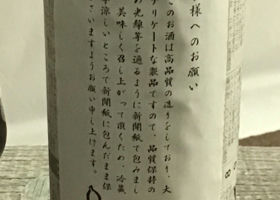 様へのお願い
のお酒は高品質の造りをしており、大
デリケートな製品ですので、品質保持の
め光線等を通さぬように新聞紙で包みまし
美味しく召し上がって頂くため、冷蔵
等涼しいところで新聞紙に包んだまま保
さいますようお願い申し上げます。